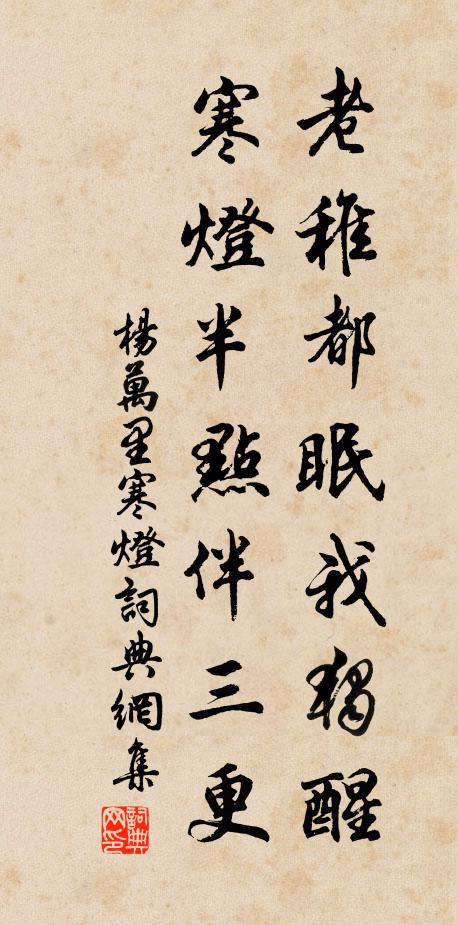 老稚都眠我獨醒
寒燈半點伴三更
楊萬里寒燈詞典網集
詞典
网印